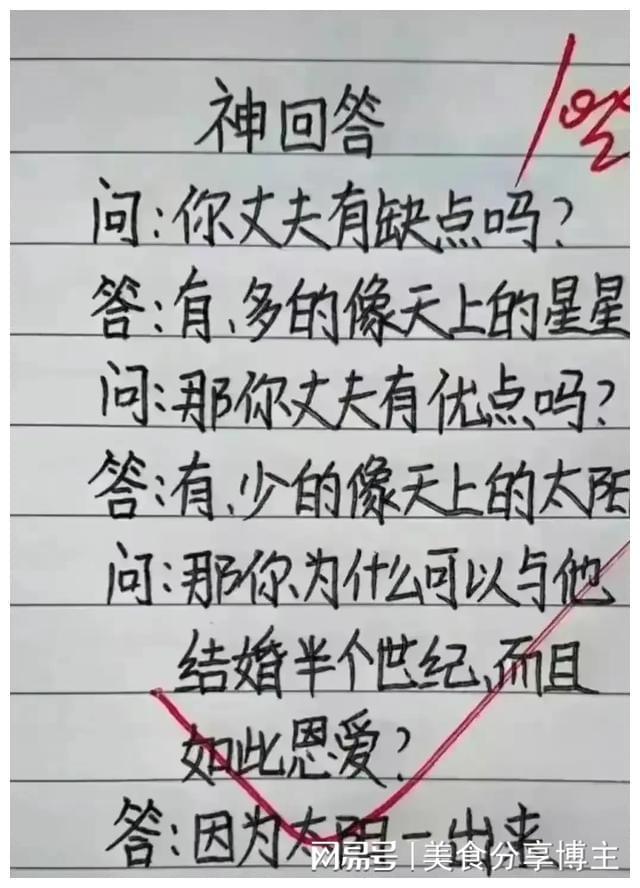 神回答
问:你丈夫有缺点吗?
答:有、多的像天上的星星
问:那你丈夫有优点吗?
答:有、少的像天上的太阳
问:那你为什么可以与他
结婚半个世纪、而且
如此恩爱?
答:因为太阳一出来
网易号 | 美食分享博主